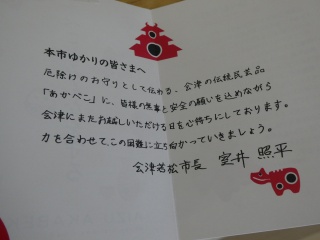 本市ゆかりの皆さまへ
厄除けのお守りとして伝わる、会津の伝統民芸品
「あかべこ」に、皆様の無事と安全の願いを込めながら
会津にまたお越しいただける日を心待ちにしております。
力を合わせて、この困難に立ち向かっていきましょう。
会津若松市長 室井 照平